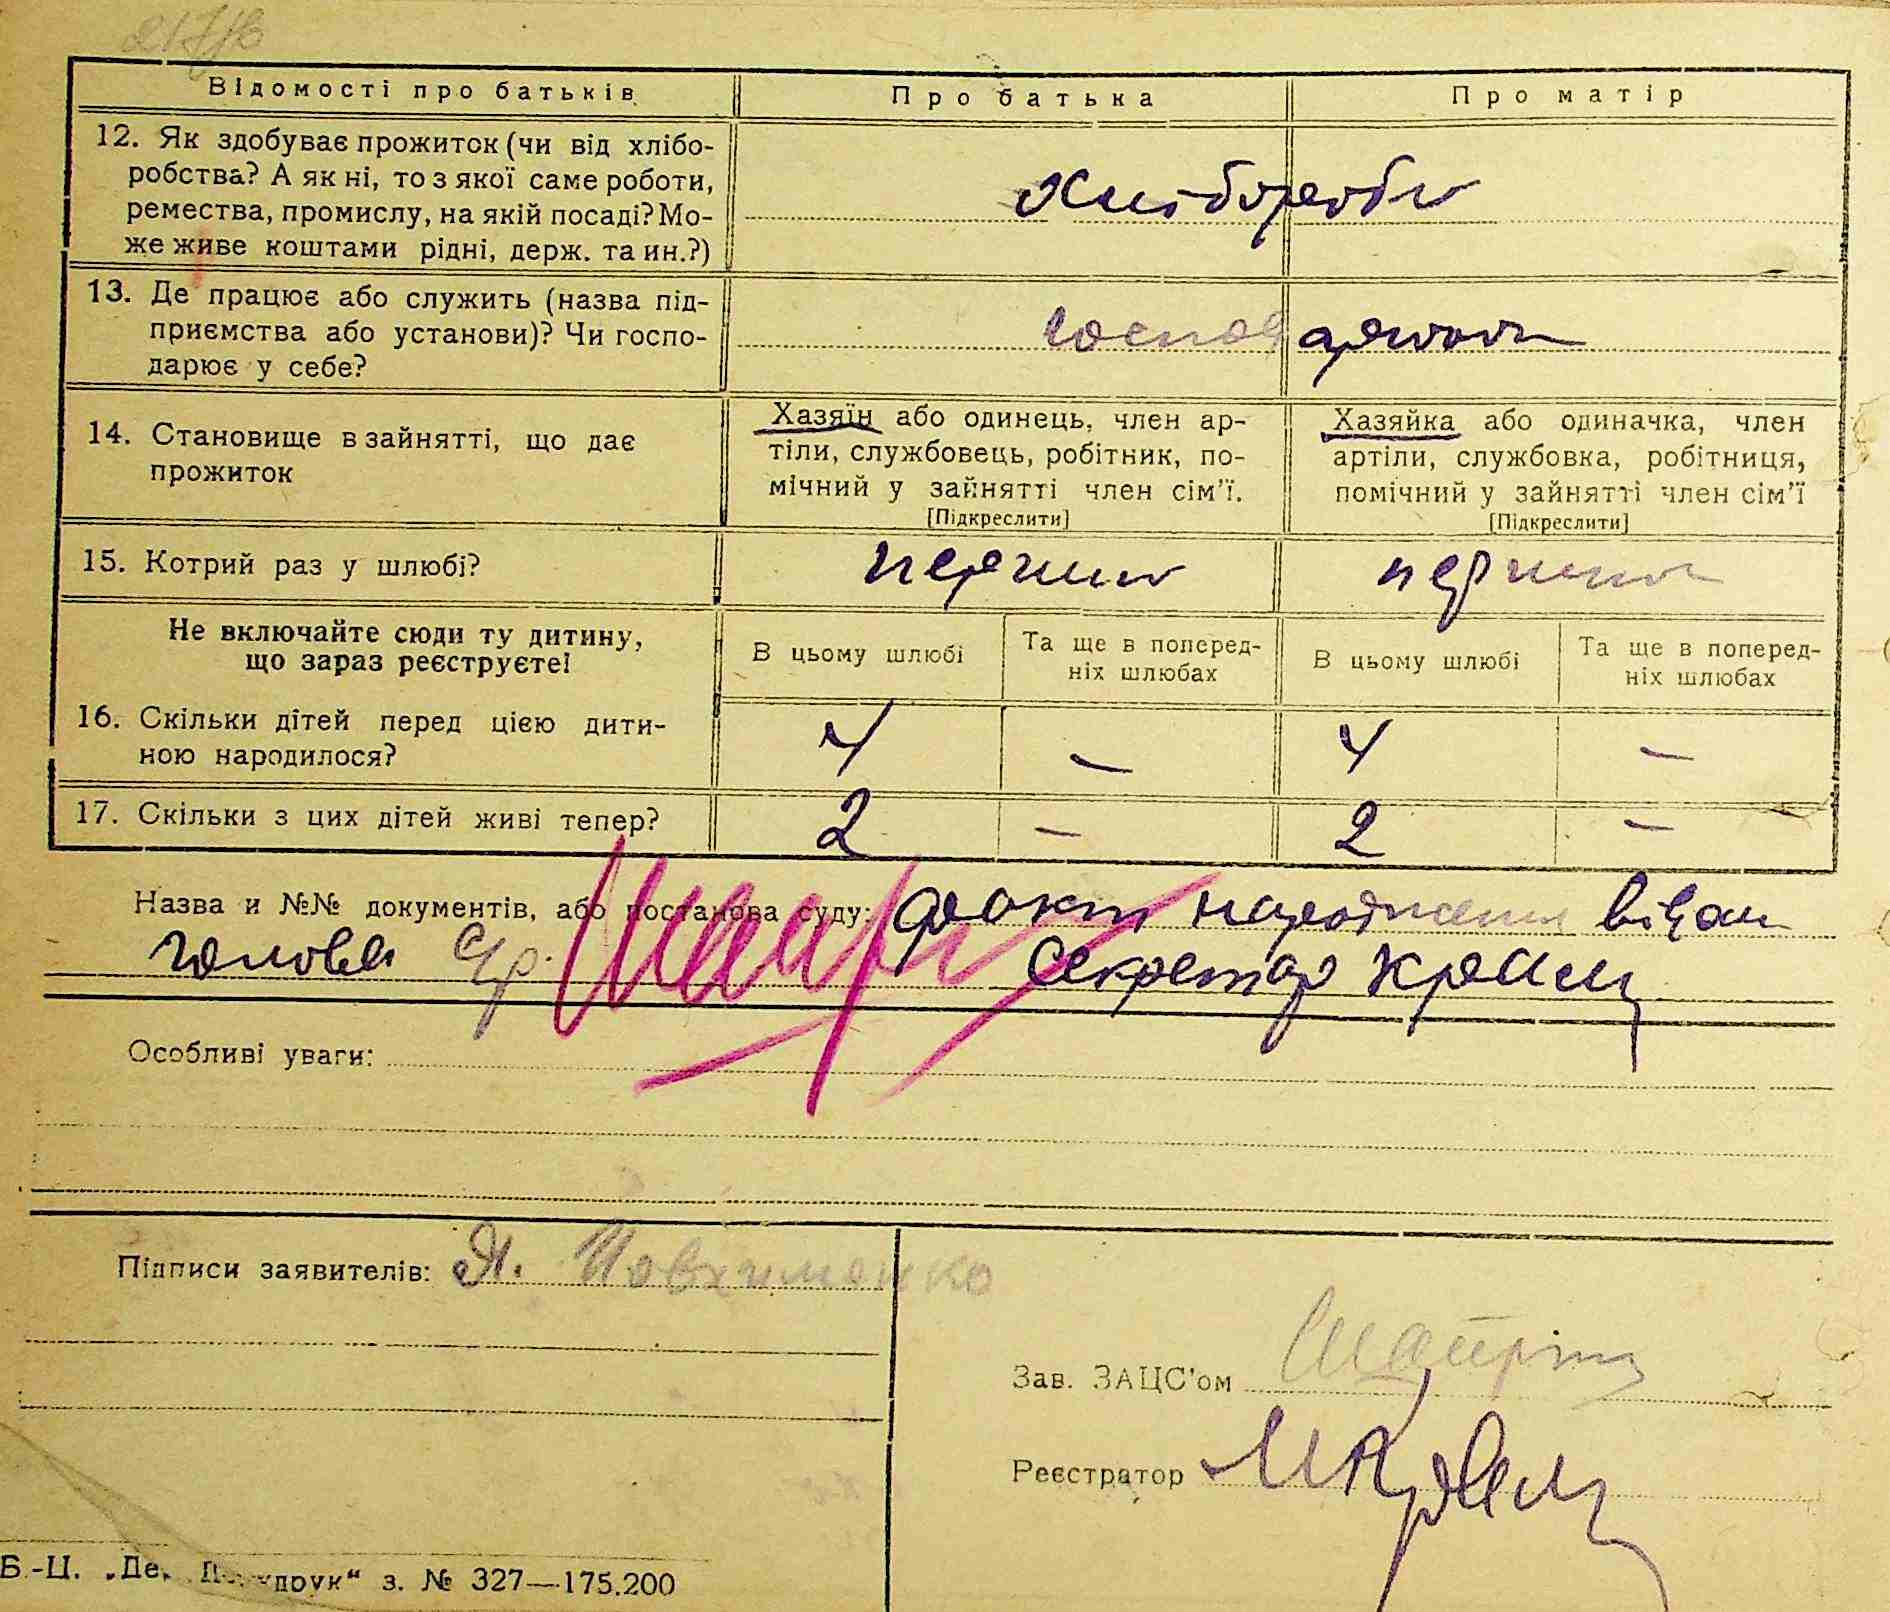 Відомості про батьків Про батька Про матір
12. Як здобуває прожиток (чи від хлібо-
робства? А як ні, то з якої саме роботи,
ремества, промислу, на якій посаді? Мо-
же живе коштами рідні, держ. та ин.?)
Хлібороби
13. Де працює або служить (назва під-
приємства або установи)? Чи госпо-
дарює у себе?
14. Становище в зайнятті, що дає
прожиток
Хазяїн або одинець, член ар-
тіли, службовець, робітник, по-
мічний у зайнятті член сім'ї.
[Підкреслити]
Хазяйка або одиначка, член
артіли, службовка, робітниця,
помічний у зайнятті член сім'ї
[Підкреслити]
15. Котрий раз у шлюбі?
Не включайте сюди ту дитину,
що зараз реєструєте!
В цьому шлюбі Та ще в поперед-
ніх шлюбах
В цьому шлюбі Та ще в поперед-
ніх шлюбах
16. Скільки дітей перед цією дити-
ною народилося?
4 — 4 —
17. Скільки з цих дітей живі тепер? 2 — 2 —
Назва и №№ документів, або постанова суду: факт народження
голова Секретар
Особливі уваги:
Підписи заявителів: Я.
Зав. ЗАЦС'ом
Реєстратор
Б.-Ц. з. № 327—175.200